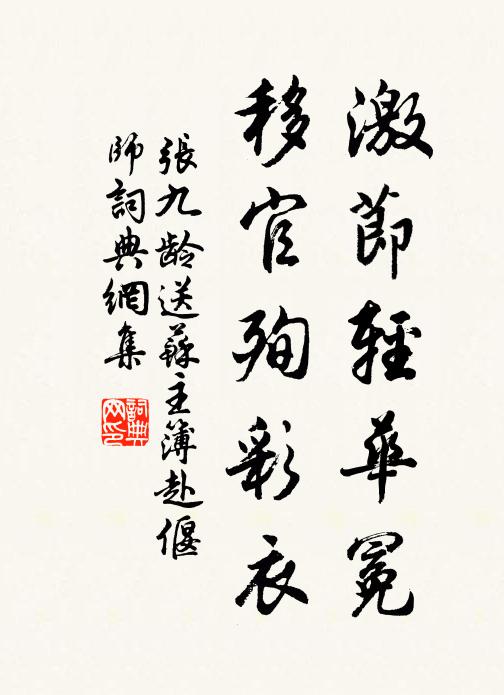 激節輕華冕
移官殉彩衣
張九齡送蘇主簿赴偃
師詞典網集
詞典網印